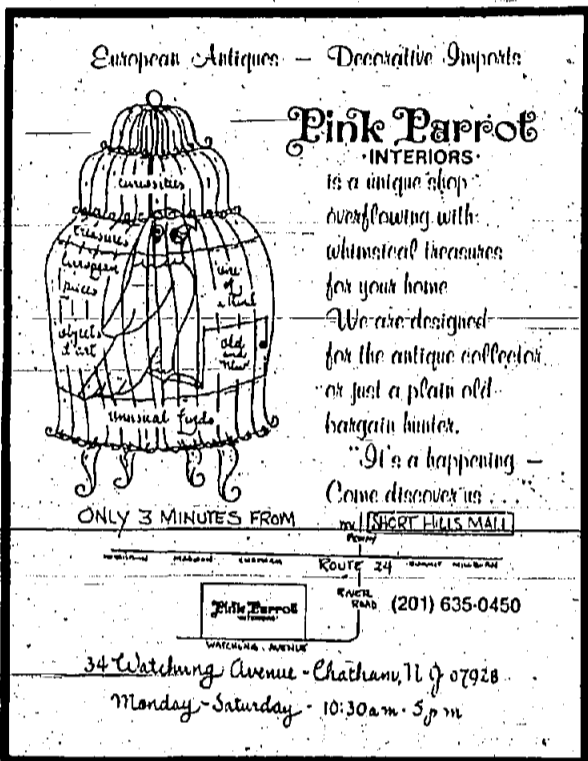 European Antiques – Decorative Imports
Pink Parrot
·INTERIORS·
is a unique shop
overflowing with
whimsical treasures
for your home
We are designed
for the antique collector
or just a plain old
bargain hunter.
"It's a happening –
Come discover us . . .
curiosities
treasures
European
pieces
objects
d'art
one
of
a kind
old
and
New
Unusual finds
ONLY 3 MINUTES FROM
SHORT HILLS MALL
MADISON CHATHAM ROUTE 24 SUMMIT MILLBURN
RIVER
ROAD
(201) 635-0450
Pink Parrot
INTERIORS
WATCHUNG AVENUE
34 Watchung Avenue - Chatham, N J 07928
Monday - Saturday - 10:30am - 5pm